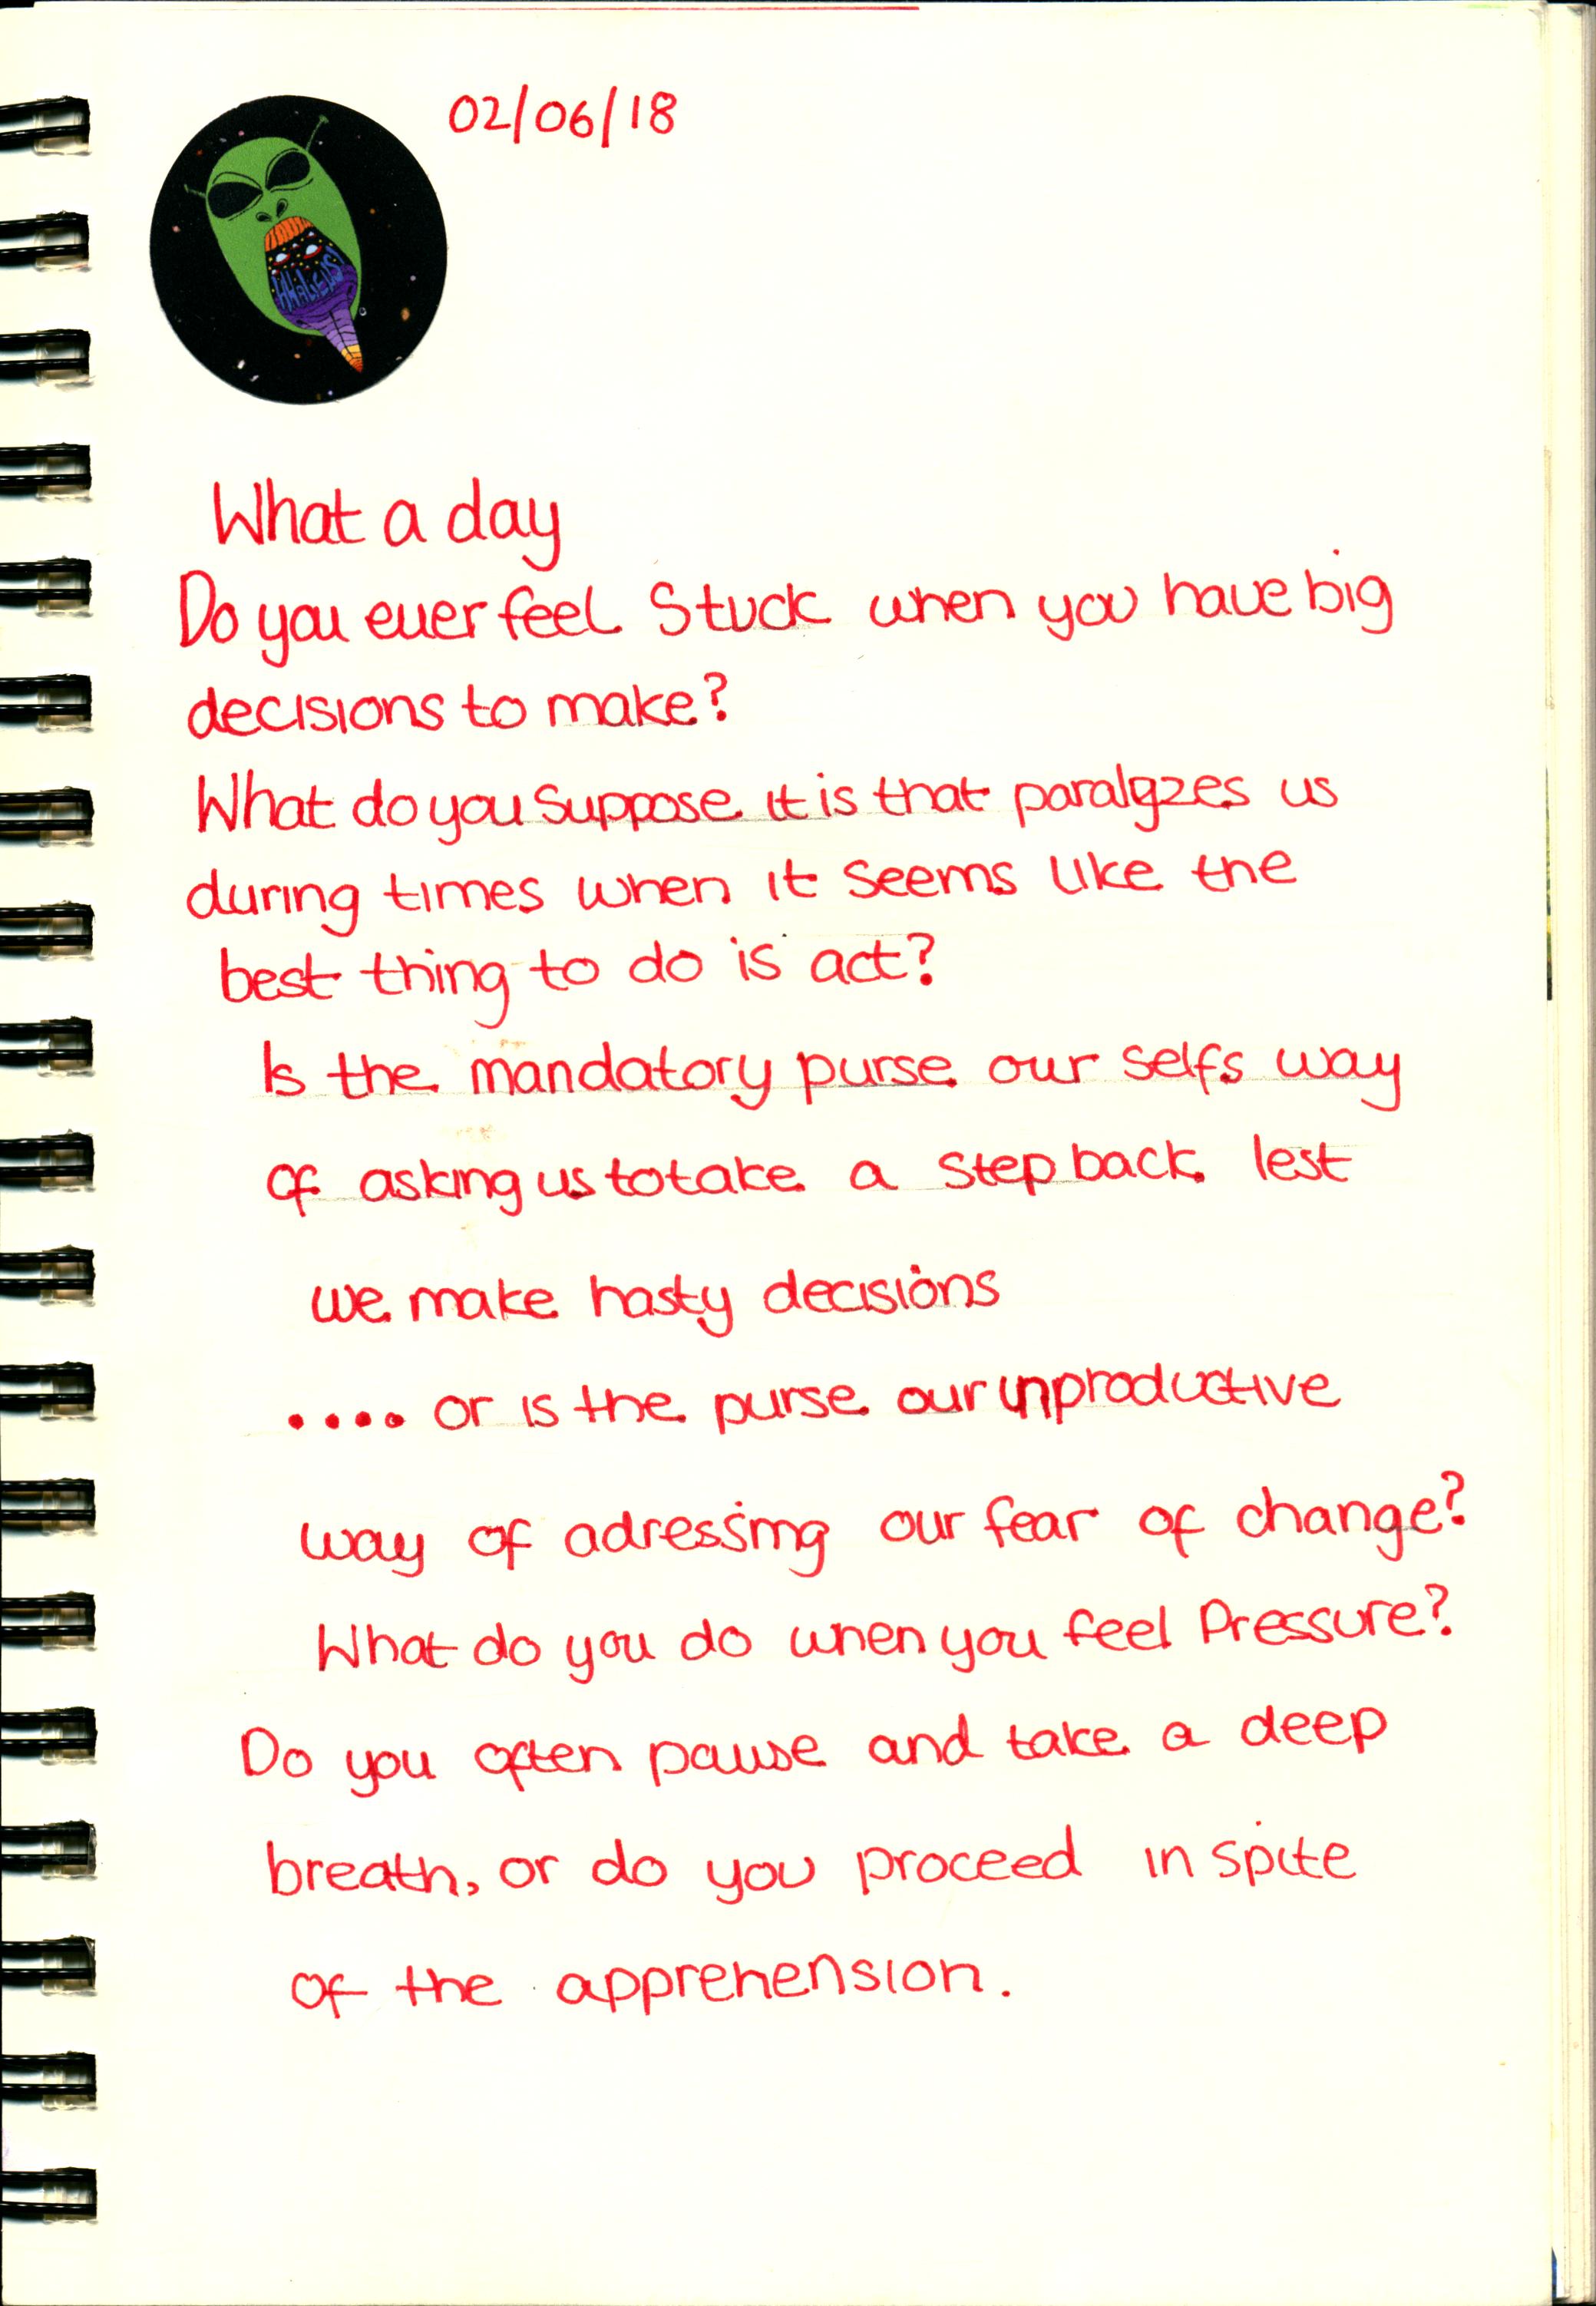 02/06/18
What a day
Do you ever feel Stuck when you have big
decisions to make?
What do you suppose it is that paralyzes us
during times when it seems like the
best thing to do is act?
Is the mandatory purse our selfs way
of asking us to take a step back lest
we make hasty decisions
.... or is the purse our inproductive
way of adressing our fear of change?
What do you do when you feel Pressure?
Do you often pause and take a deep
breath, or do you proceed in spite
of the apprehension.